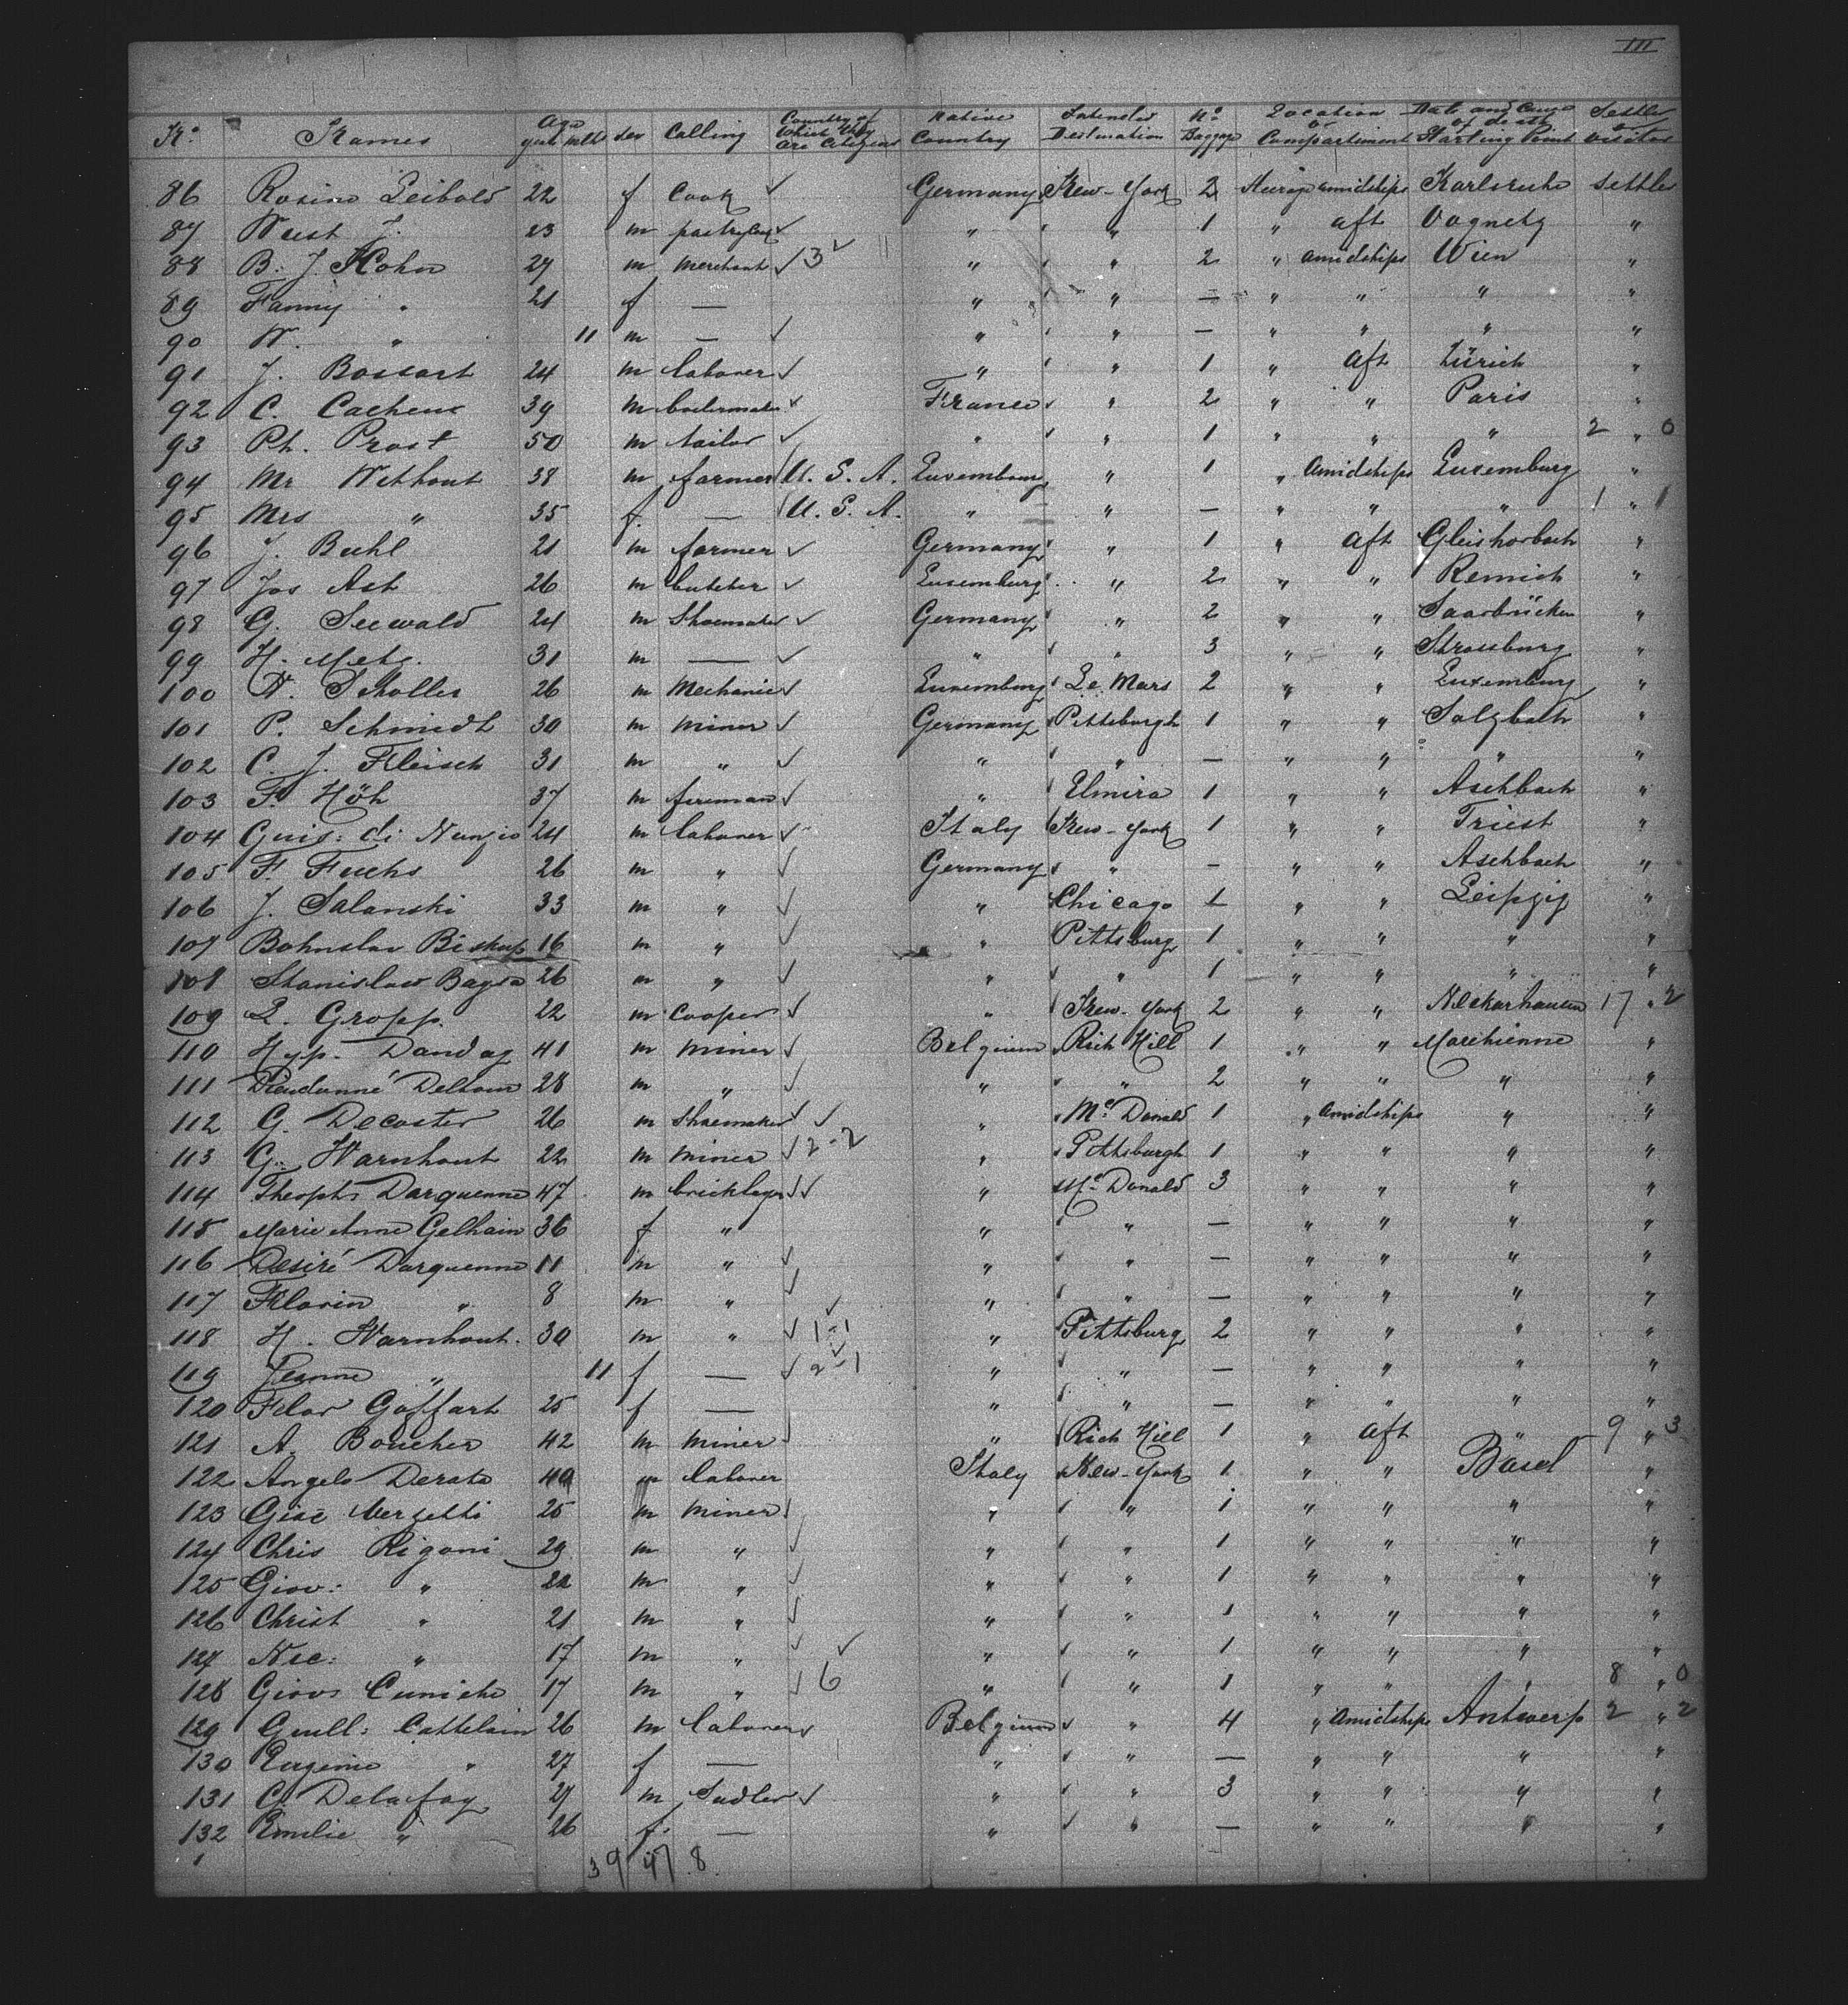 III
No Names Age years Mths Sex Calling Country of which they are Citizens Native Country Intended Destination No Baggage Location or Compartiment Date and Cause of death Starting Point Settler or visitor
86 Rosine Leibold 22 f Cook ✓ Germany New-York 2 Steerage amidships Karlsruhe settler
87 Wuest J. 23 m pastrycook ✓ " " 1 " aft "
88 B. J. Kohn 27 m merchant ✓ 3 " " 2 " amidships Wien "
89 Fanny " 21 f — " " — " " " "
90 W. " 11 m — ✓ " " — " " " "
91 J. Bossart 24 m laborer ✓ " " 1 " aft Zürich "
92 C. Cacheux 39 m boilermaker ✓ France " 2 " " Paris "
93 Ph. Prost 50 m tailor ✓ " " 1 " " " 2 " 0
94 Mr Wethout 38 m farmer U. S. A. Luxembourg " 1 " amidships Luxemburg "
95 Mrs " 35 f — U. S. A. " " — " " " 1 " 1
96 J. Buhl 21 m farmer ✓ Germany " 1 " aft Gleishorbach "
97 Jos Ast 26 m butcher ✓ Luxemburg " 2 " " Remich "
98 G. Seewald 24 m Shoemaker ✓ Germany " 2 " " Saarbrücken "
99 H. Metz. 31 m — ✓ " " 3 " " Strassburg "
100 N. Scholler 26 m Mechanic ✓ Luxemburg Le Mars 2 " " Luxemburg "
101 P. Schmidt 30 m miner ✓ Germany Pittsburgh 1 " " Salzbach "
102 C. J. Fleisch 31 m " ✓ " " — " " " "
103 F. Höh 37 m fireman ✓ " Elmira 1 " " Aschbach "
104 Guis: di Nunzio 24 m laborer ✓ Italy New-York 1 " " Triest "
105 F. Fuchs 26 m " ✓ Germany " — " " Aschbach "
106 J. Salanski 33 m " ✓ " Chicago 1 " " Leipzig "
107 Bohuslav Biskup 16 m " ✓ " Pittsburg 1 " " " "
108 Stanislaw Bagsa 26 m " ✓ " " 1 " " " "
109 L. Gropp. 22 m Cooper ✓ " New-York 2 " " Neckarhausen 17 " 2
110 Hyp. Dandoy 41 m miner ✓ Belgium Rich Hill 1 " " Marchienne "
111 Dieudonné Delhour 28 m " ✓ " " 2 " " " "
112 G. Decoster 26 m Shoemaker ✓ ✓ " Mc Donald 1 " amidships " "
113 G. Warnhout 22 m miner ✓ 2-2 " Pittsburgh 1 " " " "
114 Theoph. Darquenne 47 m bricklayer ✓✓ " Mc Donald 3 " " " "
115 Marie Anne Gelhain 36 f " " " — " " " "
116 Desiré Darquenne 11 m " ✓ " " — " " " "
117 Florin " 8 m " ✓ " " — " " " "
118 H. Warnhout. 30 m " ✓ 1-1 " Pittsburg 2 " " " "
119 Jeanne " 11 f — ✓ 2-1 " " — " " " "
120 Flor Goffart 25 f — " " — " " " "
121 A. Boucher 42 m miner " Rich Hill 1 " aft " 9 " 3
122 Angelo Derato 49 m laborer Italy New-York 1 " " Basel "
123 Giac Versetti 25 m miner " " 1 " " " "
124 Chris Rigoni 29 m " ✓ " " 1 " " " "
125 Giov: " 22 m " ✓ " " 1 " " " "
126 Christ " 21 m " ✓ " " 1 " " " "
127 Nic: " 17 m " ✓ ✓ " " 1 " " " "
128 Giovs Cunicho 17 m " ✓ 6 " " 1 " " " 8 " 0
129 Guill: Cattelain 26 m laborer ✓ Belgium " 4 " amidships Antwerp 2 " 2
130 Eugenie " 27 f — " " — " " " "
131 G. Delafoy 27 m Sadler ✓ " " 3 " " " "
132 Emilie " 26 f. — " " — " " " "
39 47 8